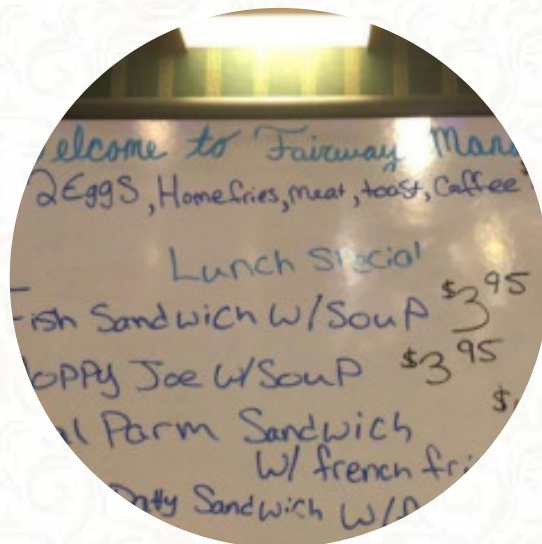 elcome to Fairway Man
2 Eggs, Homefries, meat, toast, Caffee
Lunch Special
Fish Sandwich W/Soup $3.95
loppy Joe W/Soup $3.95
al Parm Sandwich $
W/ french fri
Patty Sandwich W/